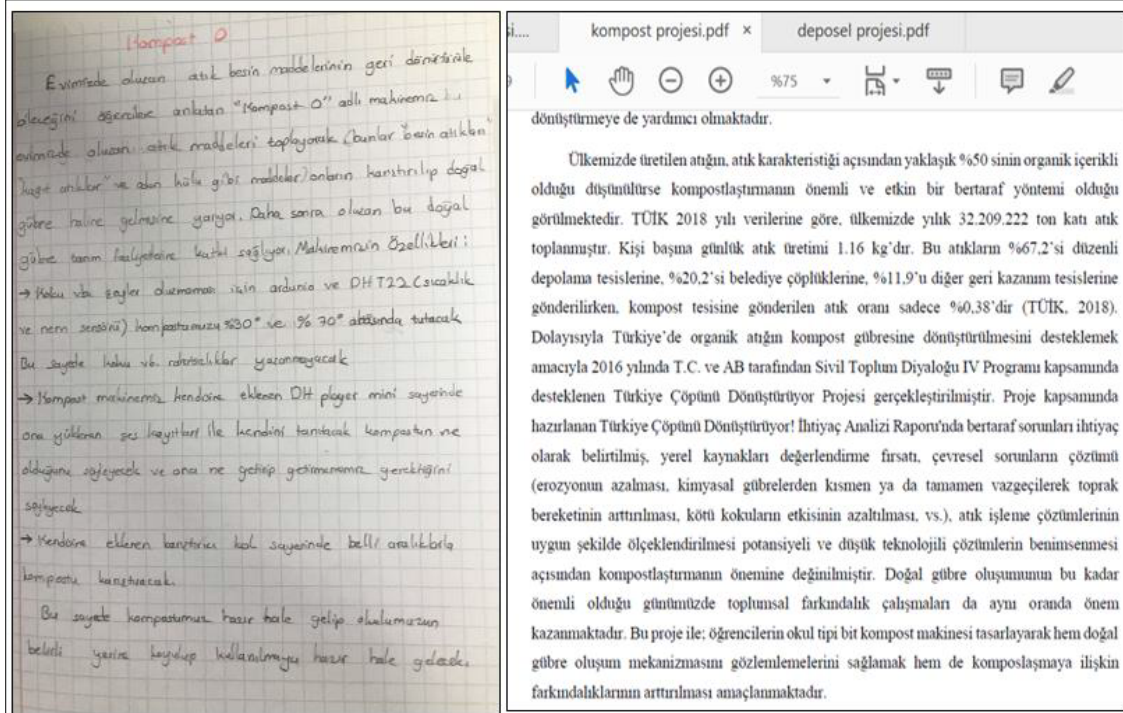 Kompost O
Evimizde oluşan atık besin maddelerinin geri dönüştürüle
bileceğini öğrencilere anlatan "Kompost O" adlı makinemiz bu
evimizde oluşan atık maddeleri toplayarak (bunlar "besin atıkları"
"kağıt atıklar" ve gibi maddeler) onların karıştırılıp doğal
gübre haline gelmesine yarıyor. Daha sonra oluşan bu doğal
gübre tarım katkı sağlıyor. Makinemizin Özellikleri:
→ Koku vb. şeyler olmaması için ardunio ve DHT22 (sıcaklık
ve nem sensörü) kompostumuzu %30° ve % 70° arasında tutacak
Bu sayede koku vb. yaşanmayacak
→ Kompost makinemiz kendisine eklenen DH player mini sayesinde
ona yüklenen ses kayıtları ile kendini tanıtacak kompostun ne
olduğunu söyleyecek ve ona ne getirip getirmememiz gerektiğini
söyleyecek
→ Kendisine eklenen karıştırıcı kol sayesinde belli aralıklarla
kompostu karıştıracak.
Bu sayede kompostumuz hazır hale gelip okulumuzun
belirli yerine koyulup kullanılmaya hazır hale gelecek.
kompost projesi.pdf × deposel projesi.pdf
%75
dönüştürmeye de yardımcı olmaktadır.
Ülkemizde üretilen atığın, atık karakteristiği açısından yaklaşık %50 sinin organik içerikli
olduğu düşünülürse kompostlaştırmanın önemli ve etkin bir bertaraf yöntemi olduğu
görülmektedir. TÜİK 2018 yılı verilerine göre, ülkemizde yıllık 32.209.222 ton katı atık
toplanmıştır. Kişi başına günlük atık üretimi 1.16 kg'dır. Bu atıkların %67,2'si düzenli
depolama tesislerine, %20,2'si belediye çöplüklerine, %11,9'u diğer geri kazanım tesislerine
gönderilirken, kompost tesisine gönderilen atık oranı sadece %0,38'dir (TÜİK, 2018).
Dolayısıyla Türkiye'de organik atığın kompost gübresine dönüştürülmesini desteklemek
amacıyla 2016 yılında T.C. ve AB tarafından Sivil Toplum Diyaloğu IV Programı kapsamında
desteklenen Türkiye Çöpünü Dönüştürüyor Projesi gerçekleştirilmiştir. Proje kapsamında
hazırlanan Türkiye Çöpünü Dönüştürüyor! İhtiyaç Analizi Raporu'nda bertaraf sorunları ihtiyaç
olarak belirtilmiş, yerel kaynakları değerlendirme fırsatı, çevresel sorunların çözümü
(erozyonun azalması, kimyasal gübrelerden kısmen ya da tamamen vazgeçilerek toprak
bereketinin arttırılması, kötü kokuların etkisinin azaltılması, vs.), atık işleme çözümlerinin
uygun şekilde ölçeklendirilmesi potansiyeli ve düşük teknolojili çözümlerin benimsenmesi
açısından kompostlaştırmanın önemine değinilmiştir. Doğal gübre oluşumunun bu kadar
önemli olduğu günümüzde toplumsal farkındalık çalışmaları da aynı oranda önem
kazanmaktadır. Bu proje ile; öğrencilerin okul tipi bit kompost makinesi tasarlayarak hem doğal
gübre oluşum mekanizmasını gözlemlemelerini sağlamak hem de komposlaşmaya ilişkin
farkındalıklarının arttırılması amaçlanmaktadır.